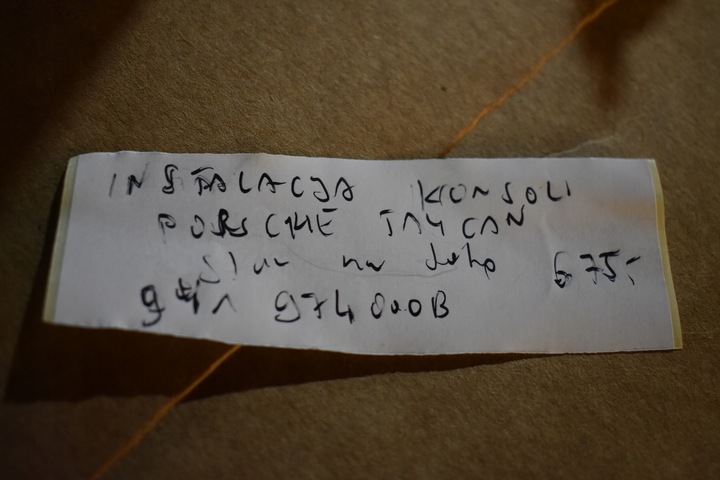 INSTALACJA KONSOLI
PORSCHE TAYCAN
na 675,-
9J1 974 000B